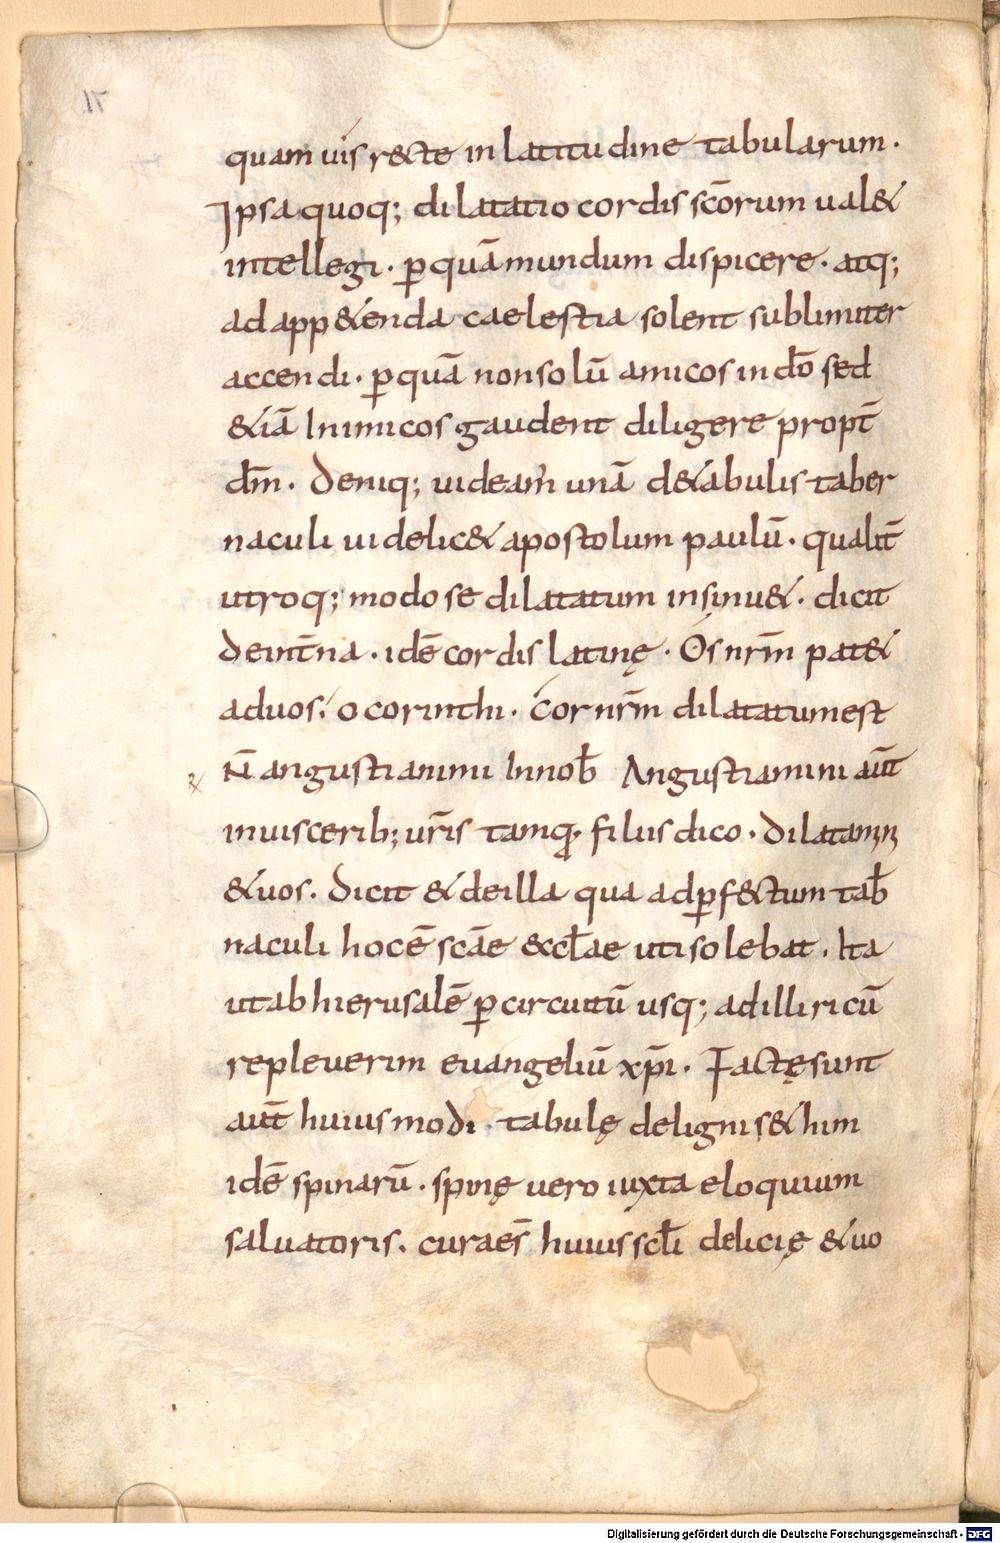 quam uis recte in latitudine tabularum.
Ipsa quoq; dilatatio cordis scōrum ual&
intellegi. ꝑ quā mundum dispicere. atq;
ad app&enda caelestia solent sublimiter
accendi. ꝑ quā non solū amicos in dō sed
&iā Inimicos gaudent diligere propt̄
dm̄. Deniq; uideam' unā de tabulis taber
naculi uidelic& apostolum paulū. qualit̄
utroq; modo se dilatatum insinu&. dicit
de int̄na. idē cordis latinę. Os nr̄m pat&
ad uos. o corinthi. Cor nr̄m dilatatum est
N̄ angustiamini In nob̄ Angustiamini aut̄
in uiscerib; ur̄is tamq̄. filiis dico. Dilatamini
& uos. Dicit & de illa qua ad ꝑfectum tab̄
naculi hoc ē scāe eccl̄ae uti solebat. Ita
ut ab hierusalē ꝑ circuitū usq; ad illiricū
repleuerim euangeliū xp̄i. Factę sunt
aut̄ huiusmodi. tabulę de lignis s&him
idē spinarū. spinę uero iuxta eloquium
saluatoris. curae s̄ huius scl̄i delicię & uo
71
Digitalisierung gefördert durch die Deutsche Forschungsgemeinschaft - DFG